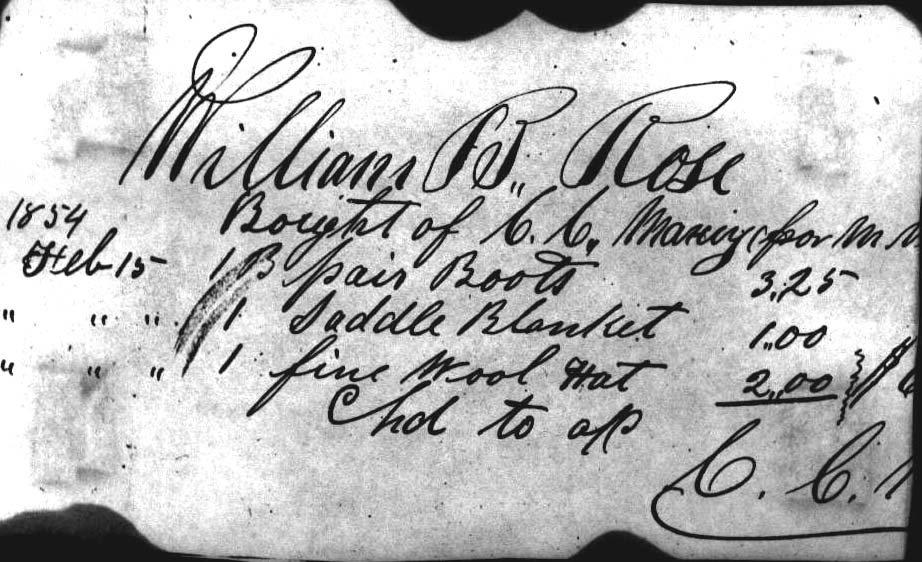 William B. Rose
1854 Bought of C. C. for M
Feb 15 1 pair Boots 3.25
" " " 1 Saddle Blanket 1.00
" " " 1 fine Wool Hat 2.00 $
Chd to a/c
C. C.